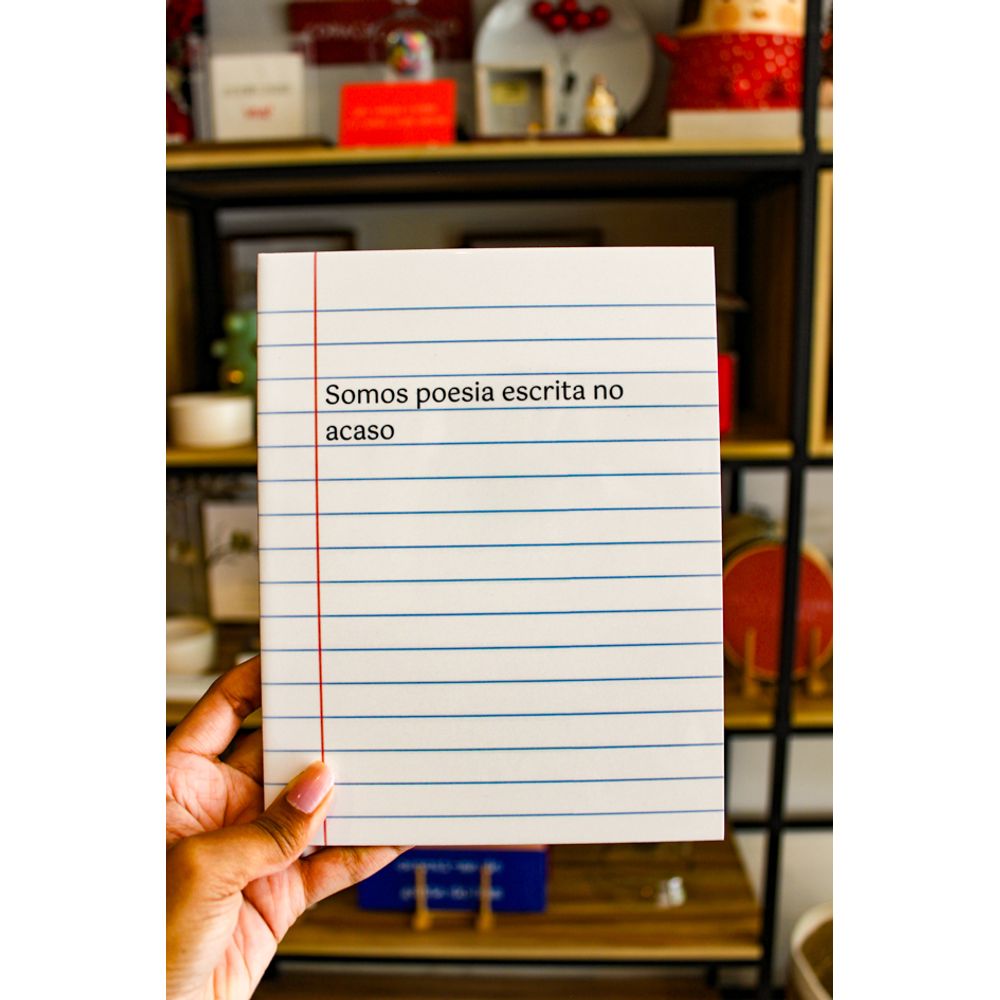 Somos poesia escrita no
acaso